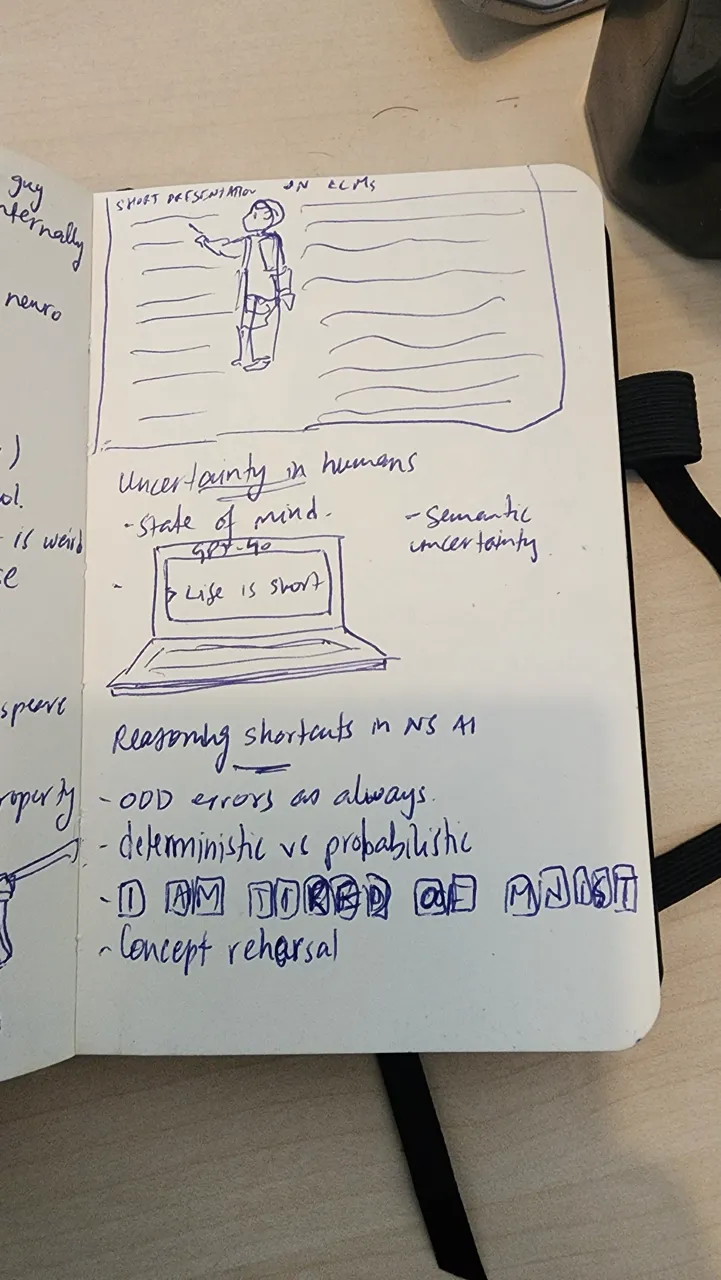 guy
nternally
neuro
)
ol.
is weird
se
speare
roperty
SHORT PRESENTATION ON LLMS
Uncertainty in humans
- State of mind.
- Semantic
uncertainty
GPT-4o
-
> Life is short
Reasoning shortcuts in NS AI
- OOD errors as always.
- deterministic vs probabilistic
- I AM TIRED OF MNIST
- Concept rehersal